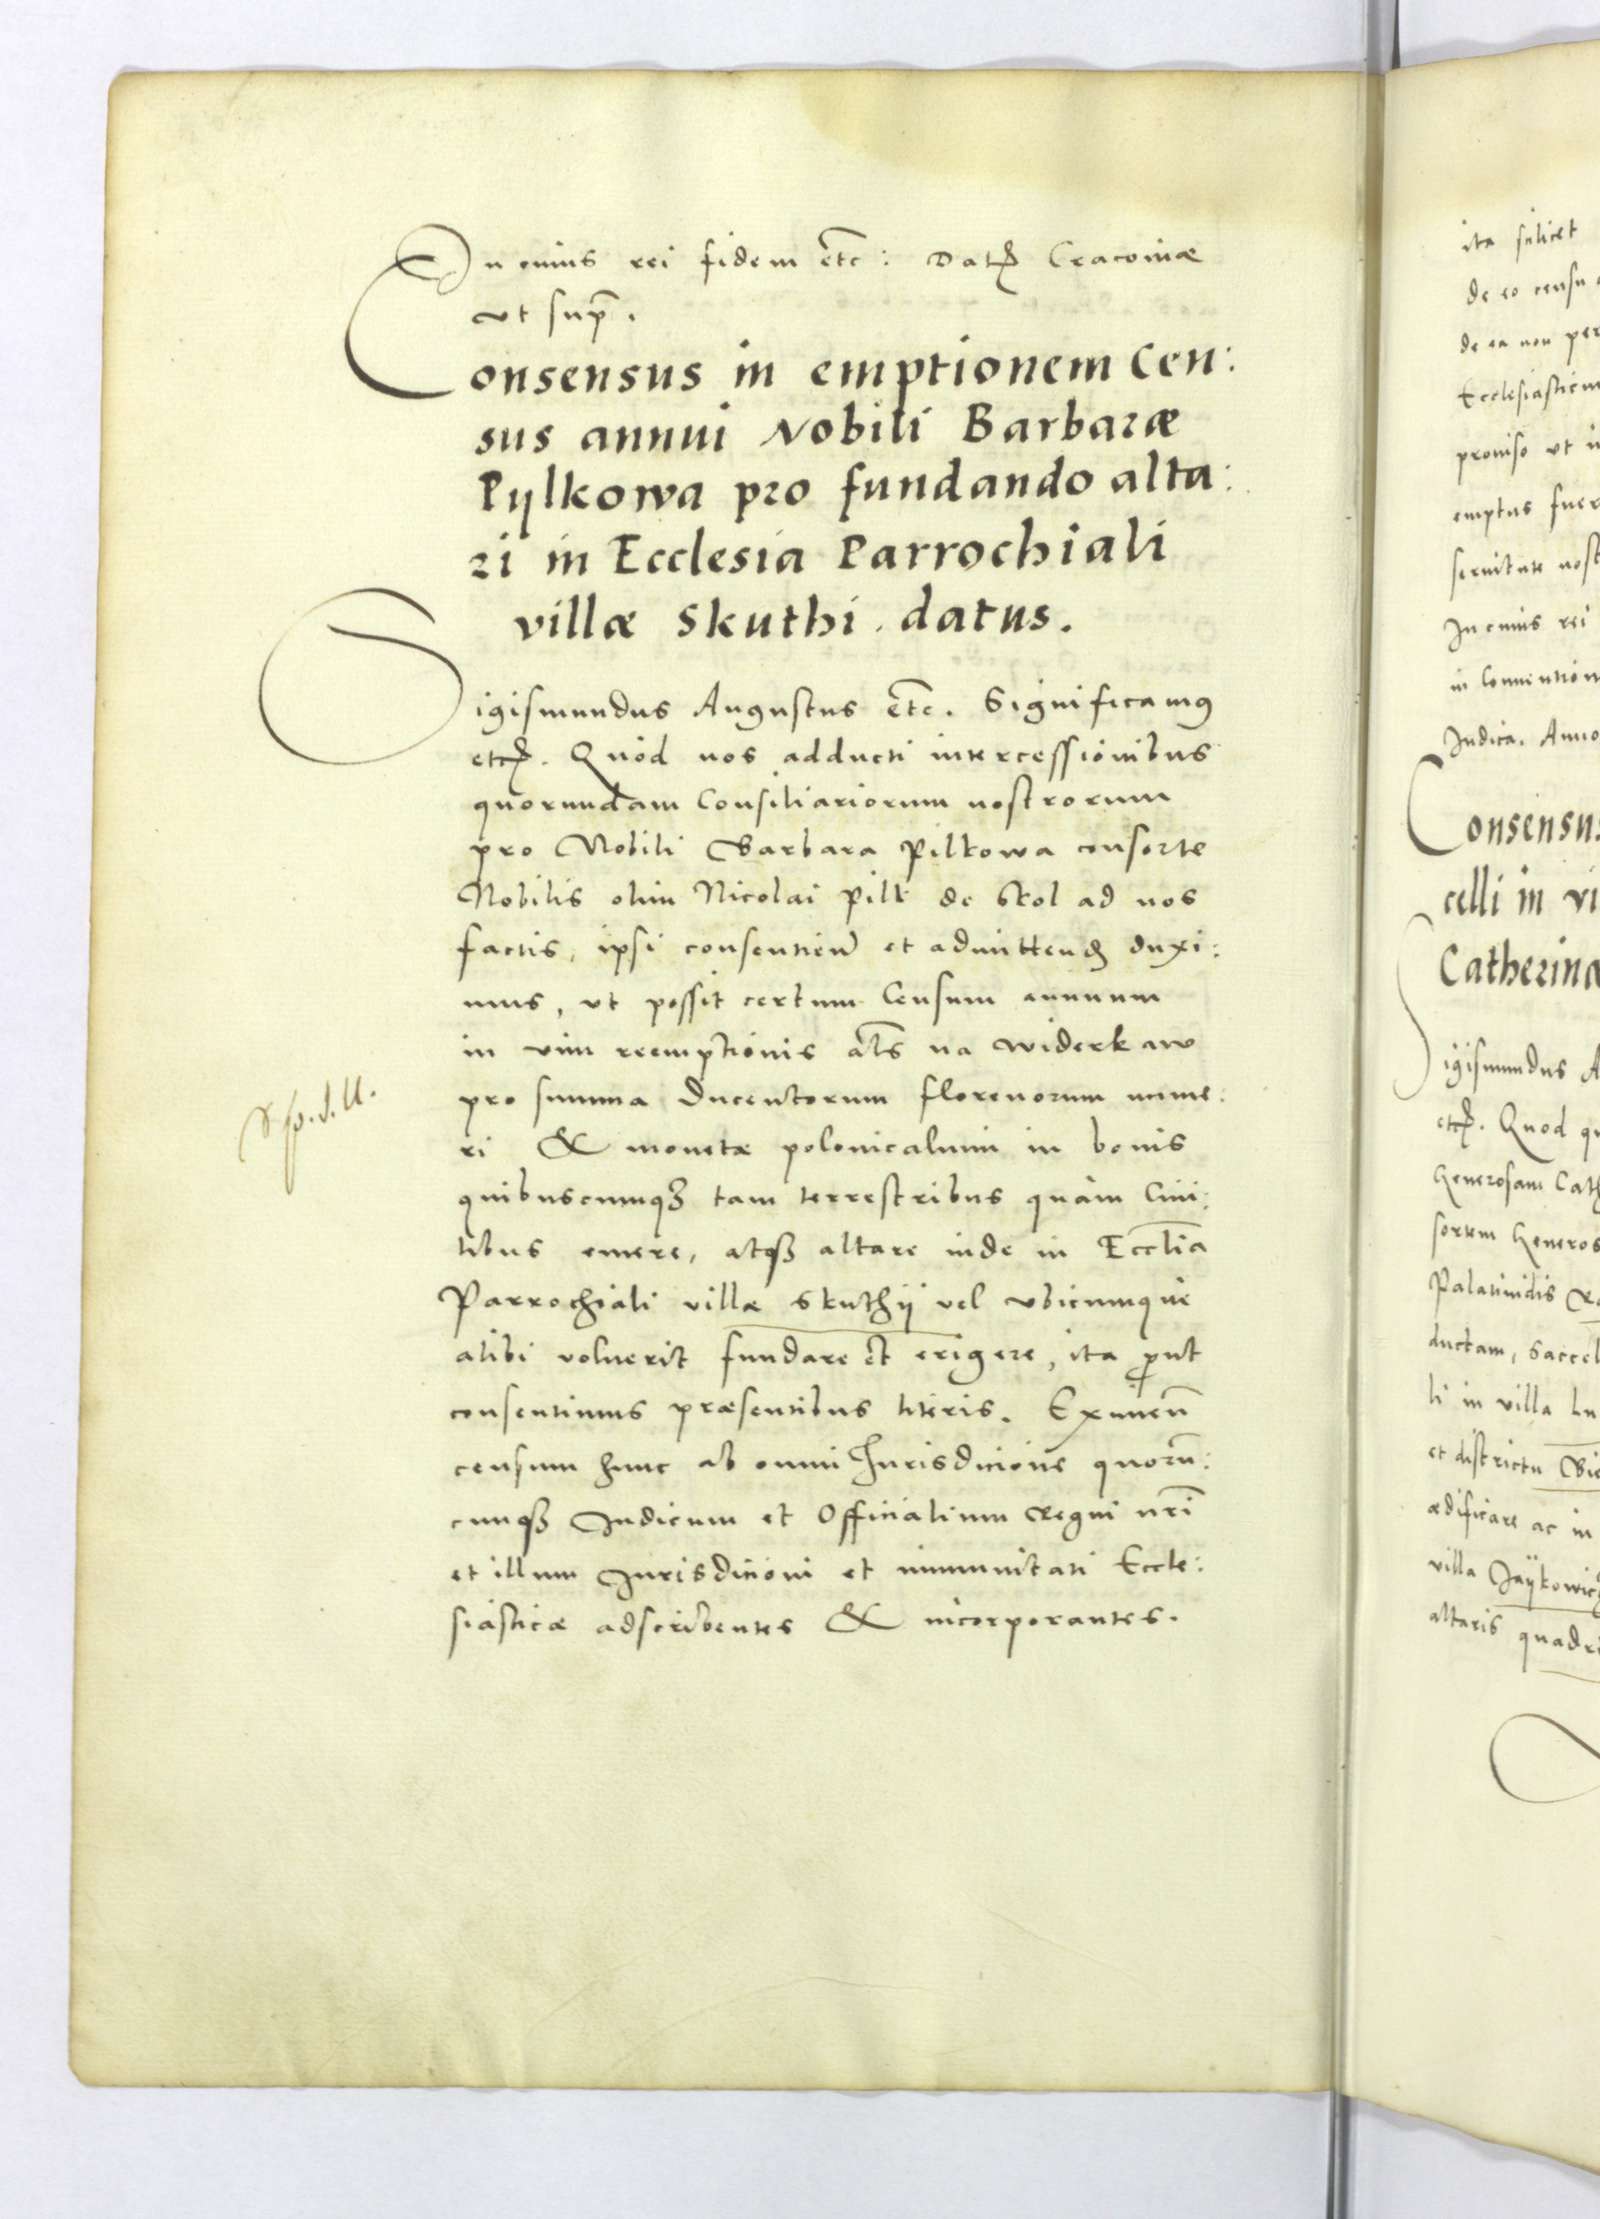 In cuius rei fidem etc: Dat Cracoviæ
ut sup.
Consensus in emptionem Cen:
sus annui Nobili Barbaræ
Pylkowa pro fundando alta:
ri in Ecclesia Parrochiali
villæ Skuthi datus.
Sigismundus Augustus etc. Significamus
etc. Quòd nos adducti intercessionibus
quorundam Consiliariorum nostrorum
pro Nobili Barbara Pilkowa consorte
Nobilis olim Nicolai Pilk de Skol ad nos
factis, ipsi consentien et admittend duxi:
mus, ut possit certum Censum annuum
in vim reemptionis als na widerkaw
pro summa ducentorum florenorum nume:
ri & monetæ polonicalium in bonis
quibuscumq tam terrestribus quàm Civi:
libus emere, atq altare inde in Ecclia
Parrochiali villæ Skuthij vel ubicumque
alibi voluerit fundare et erigere, ita prout
consentimus præsentibus literis. Eximen
censum hunc ab omni Jurisdicione quorum:
cunq Judicum et Officialium Regni nri
et illum Jurisdicioni et immunitati Eccle:
siasticæ adscribentes & incorporantes.
ita scilicet
de eo censu
de ea non per
Ecclesiasticum
proviso ut in
emptus fuer
servitute nost
In cuius rei
in Convention
Judica. Anno
Consensus
celli in vi
Catherinæ
Sigismundus A
etc. Quod qu
Generosam Cath
sortem Generos
Palatinidis Ra
ductam, Saccel
li in villa Lu
et districtu Bie
ædificare ac in
villa Jaykowic
altaris quadri